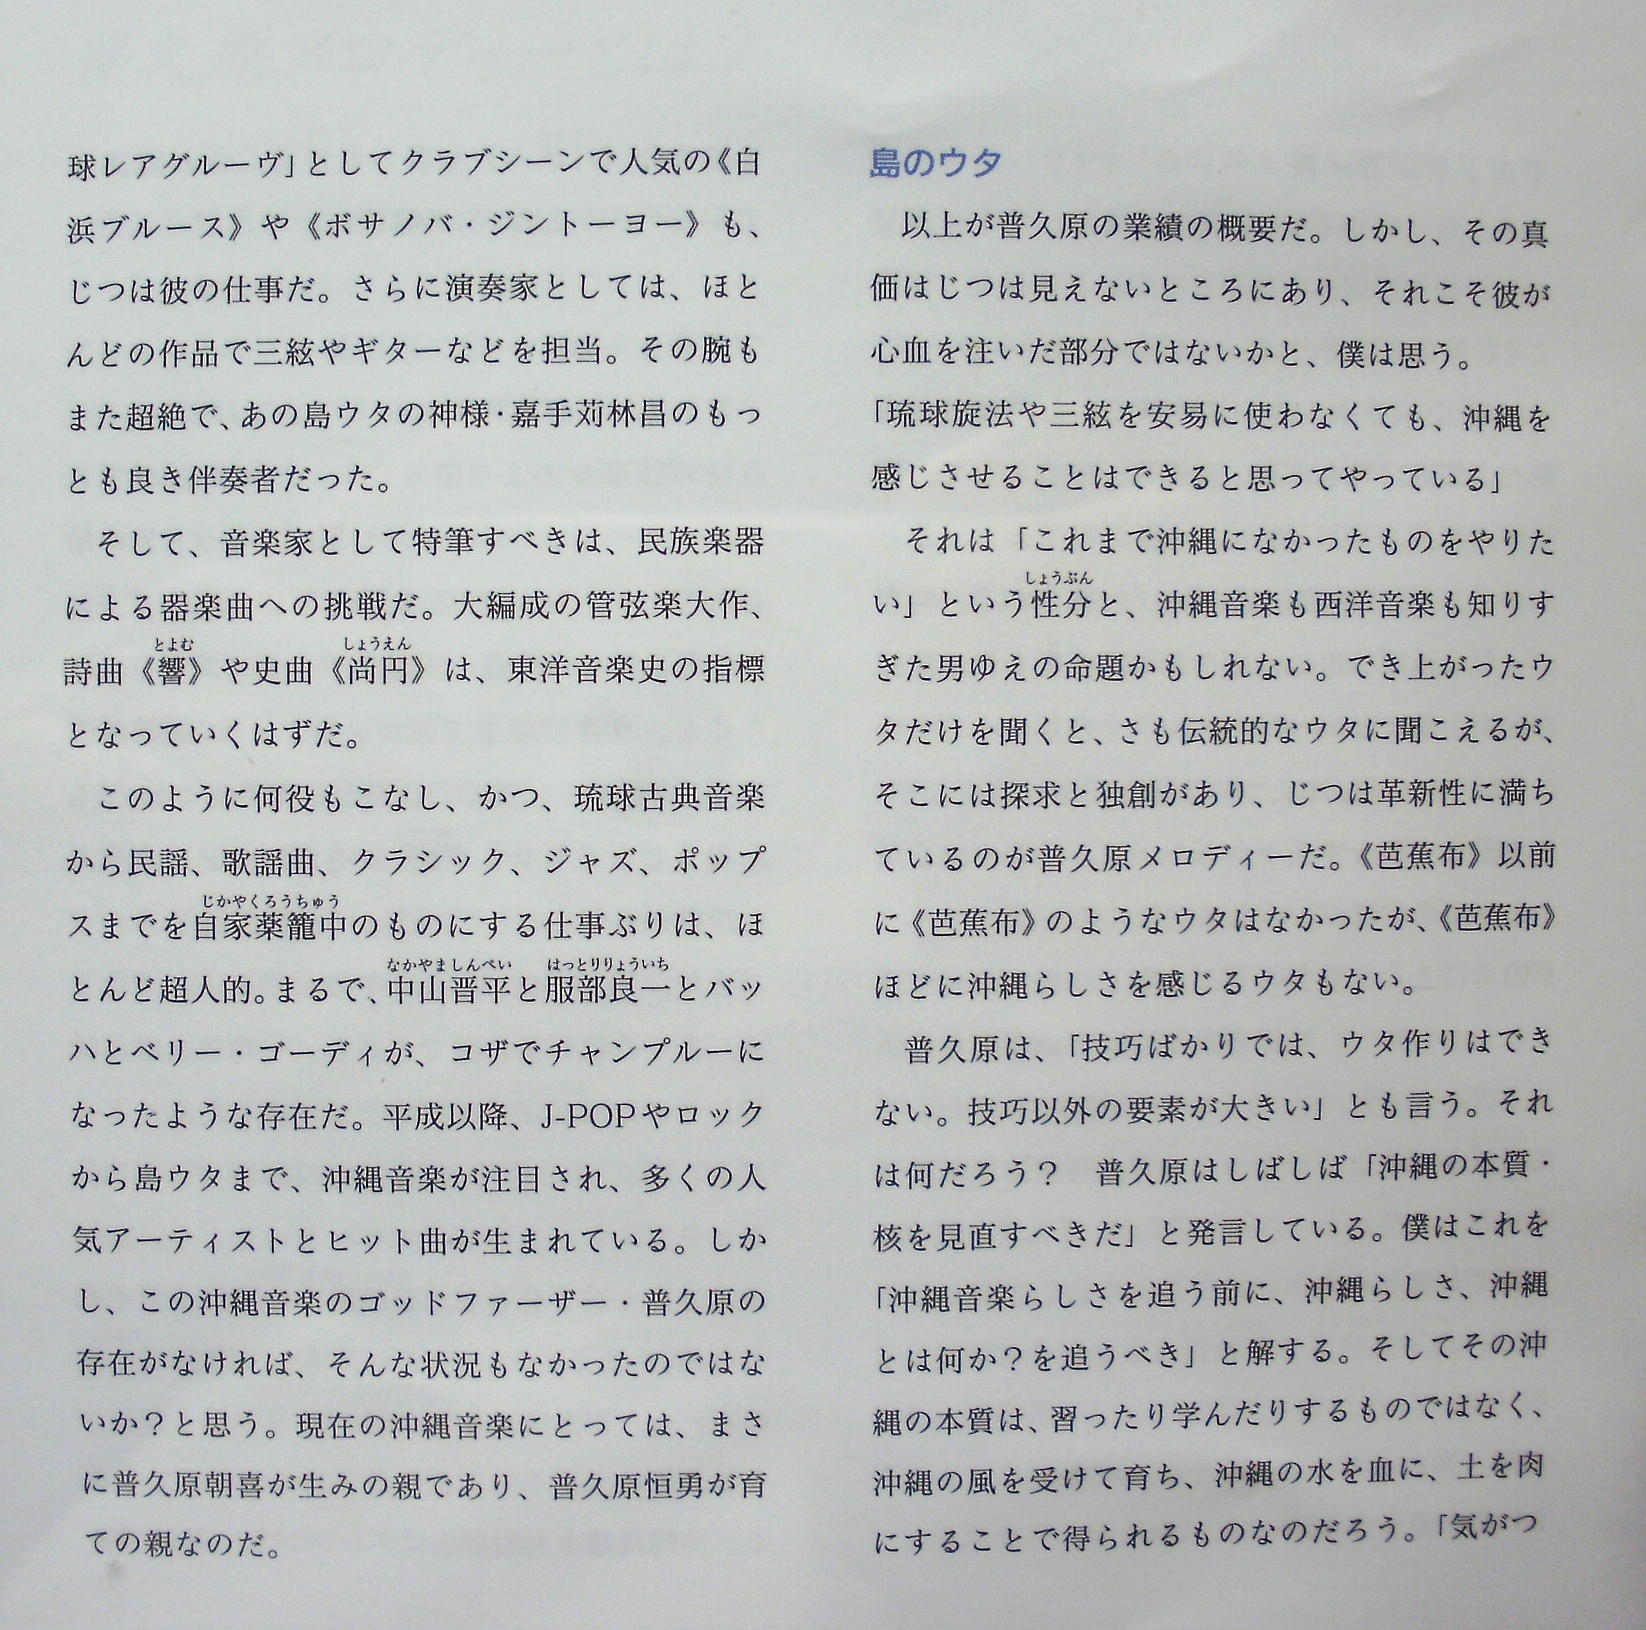 球レアグルーヴ」としてクラブシーンで人気の《白
浜ブルース》や《ボサノバ・ジントーヨー》も、
じつは彼の仕事だ。さらに演奏家としては、ほと
んどの作品で三絃やギターなどを担当。その腕も
また超絶で、あの島ウタの神様・嘉手苅林昌のもっ
とも良き伴奏者だった。
そして、音楽家として特筆すべきは、民族楽器
による器楽曲への挑戦だ。大編成の管弦楽大作、
とよむ しょうえん
詩曲《響》や史曲《尚円》は、東洋音楽史の指標
となっていくはずだ。
このように何役もこなし、かつ、琉球古典音楽
から民謡、歌謡曲、クラシック、ジャズ、ポップ
じかやくろうちゅう
スまでを自家薬籠中のものにする仕事ぶりは、ほ
なかやましんぺい はっとりりょういち
とんど超人的。まるで、中山晋平と服部良一とバッ
ハとベリー・ゴーディが、コザでチャンプルーに
なったような存在だ。平成以降、J-POPやロック
から島ウタまで、沖縄音楽が注目され、多くの人
気アーティストとヒット曲が生まれている。しか
し、この沖縄音楽のゴッドファーザー・普久原の
存在がなければ、そんな状況もなかったのではな
いか？と思う。現在の沖縄音楽にとっては、まさ
に普久原朝喜が生みの親であり、普久原恒勇が育
ての親なのだ。
島のウタ
以上が普久原の業績の概要だ。しかし、その真
価はじつは見えないところにあり、それこそ彼が
心血を注いだ部分ではないかと、僕は思う。
「琉球旋法や三絃を安易に使わなくても、沖縄を
感じさせることはできると思ってやっている」
それは「これまで沖縄になかったものをやりた
しょうぶん
い」という性分と、沖縄音楽も西洋音楽も知りす
ぎた男ゆえの命題かもしれない。でき上がったウ
タだけを聞くと、さも伝統的なウタに聞こえるが、
そこには探求と独創があり、じつは革新性に満ち
ているのが普久原メロディーだ。《芭蕉布》以前
に《芭蕉布》のようなウタはなかったが、《芭蕉布》
ほどに沖縄らしさを感じるウタもない。
普久原は、「技巧ばかりでは、ウタ作りはでき
ない。技巧以外の要素が大きい」とも言う。それ
は何だろう？　普久原はしばしば「沖縄の本質・
核を見直すべきだ」と発言している。僕はこれを
「沖縄音楽らしさを追う前に、沖縄らしさ、沖縄
とは何か？を追うべき」と解する。そしてその沖
縄の本質は、習ったり学んだりするものではなく、
沖縄の風を受けて育ち、沖縄の水を血に、土を肉
にすることで得られるものなのだろう。「気がつ